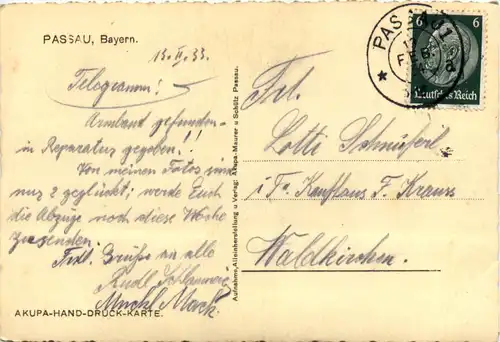 PASSAU, Bayern.
13.II.35.
Telegramm!
Armband gefunden -
in Reparatur gegeben!!
Von meinen Fotos sind
nur 2 geglückt; werde Euch
die Abzüge noch diese Woche
zusenden.
Frdl. Grüße an alle
Rudl
AKUPA-HAND-DRUCK-KARTE.
Aufnahme, Alleinherstellung u. Verlag: Akupa-Maurer u. Schütz, Passau.
PASSAU 1
6 6
Deutsches Reich
Frl.
Lotti Schnüferl
i. Fa. Kaufhaus F. Kraus
Waldkirchen.